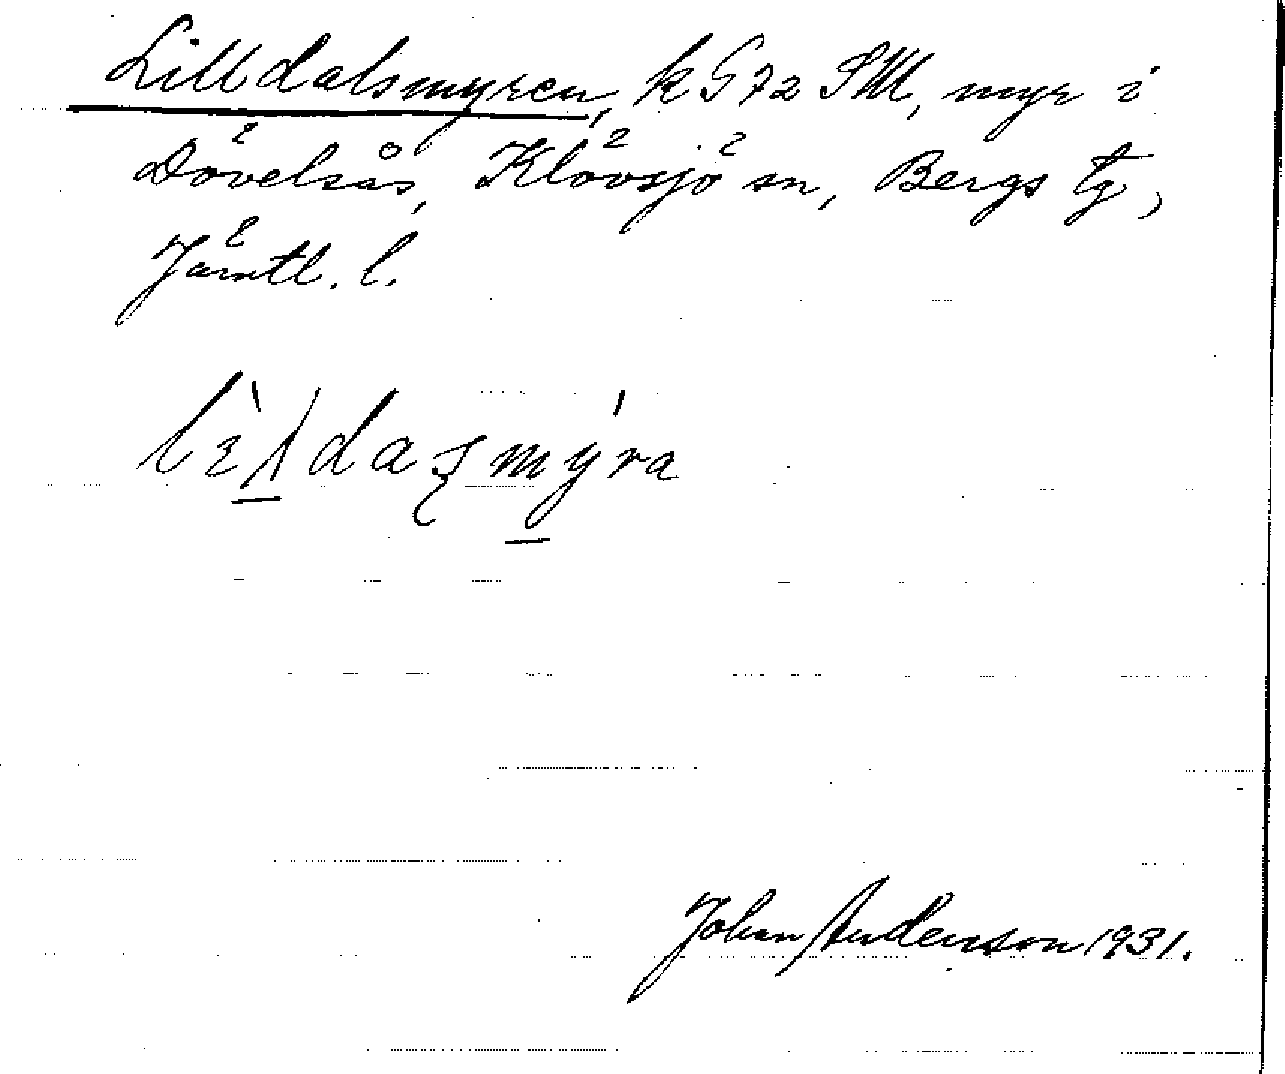 Lilldalsmyren, k G 72 SM, myr i
Dövelsås, Klövsjö sn, Bergs tg,
Jämtl. l.
Johan Andersson 1931.